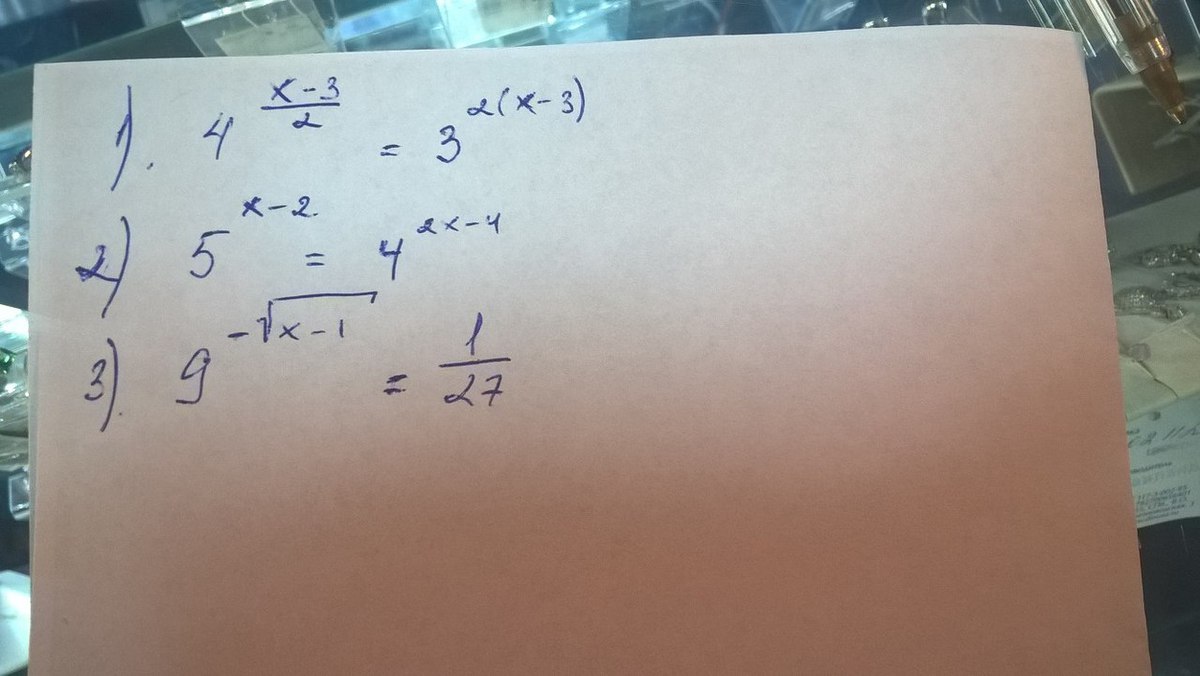 1). 4^{\frac{x-3}{2}} = 3^{2(x-3)}
2) 5^{x-2} = 4^{2x-4}
3). 9^{-\sqrt{x-1}} = \frac{1}{27}